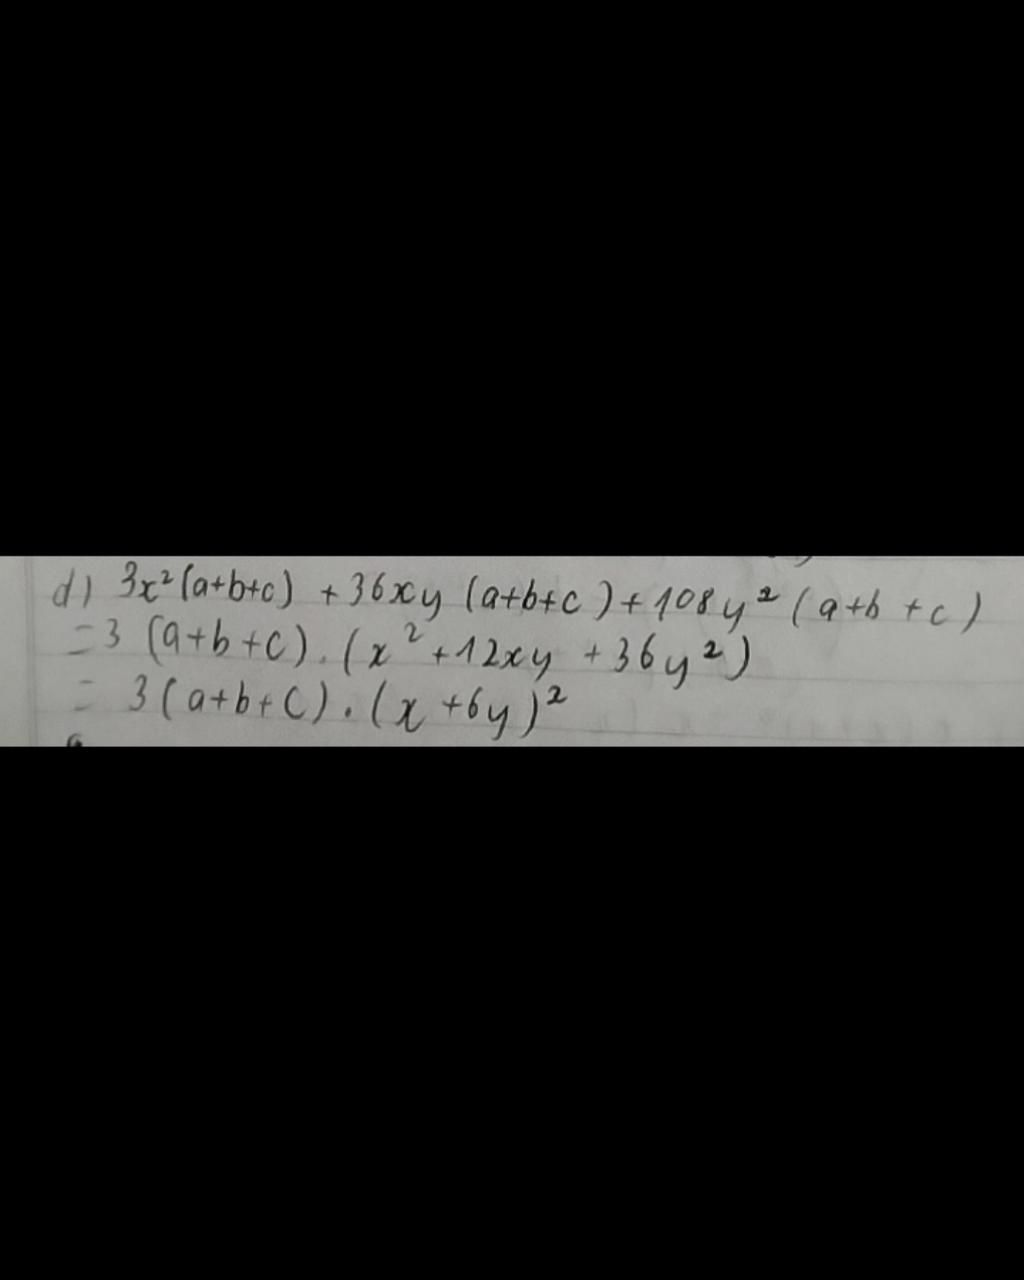 d) 3x² (a+b+c) + 36xy (a+b+c) + 108y² (a+b+c)
= 3 (a+b+c) . (x² + 12xy + 36y²)
= 3 (a+b+c) . (x + 6y)²